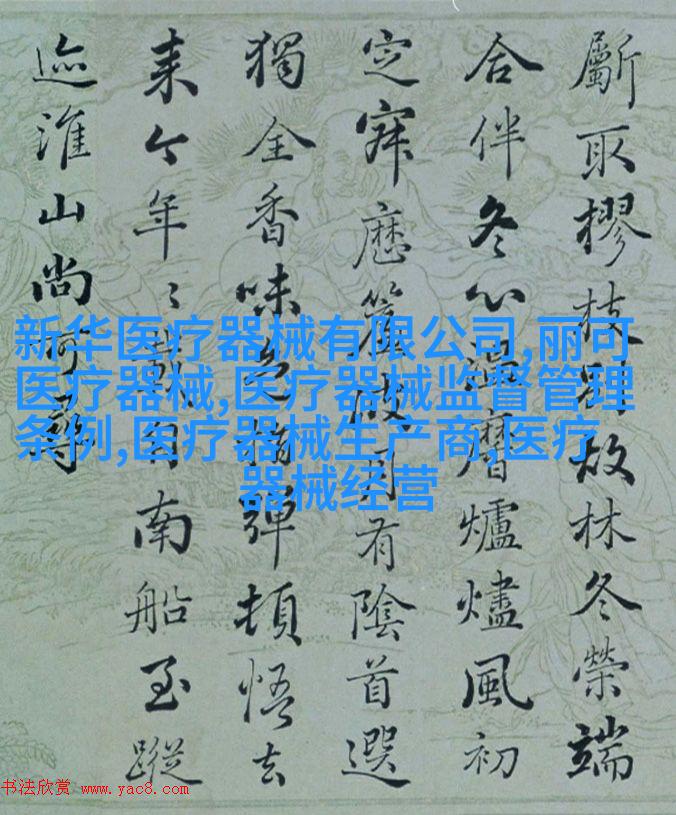 斸取樛枝林冬榮端
合伴冬心温磨爐燼風初
定寐歷月有陰首選
獨全香味色彈頓悟去
来今年〻載自南船至蹤
迹淮山尚可尋
新华医疗器械有限公司,丽可
医疗器械,医疗器械监督管理
条例,医疗器械生产商,医疗
器械经营
书法欣赏 www.yac8.com